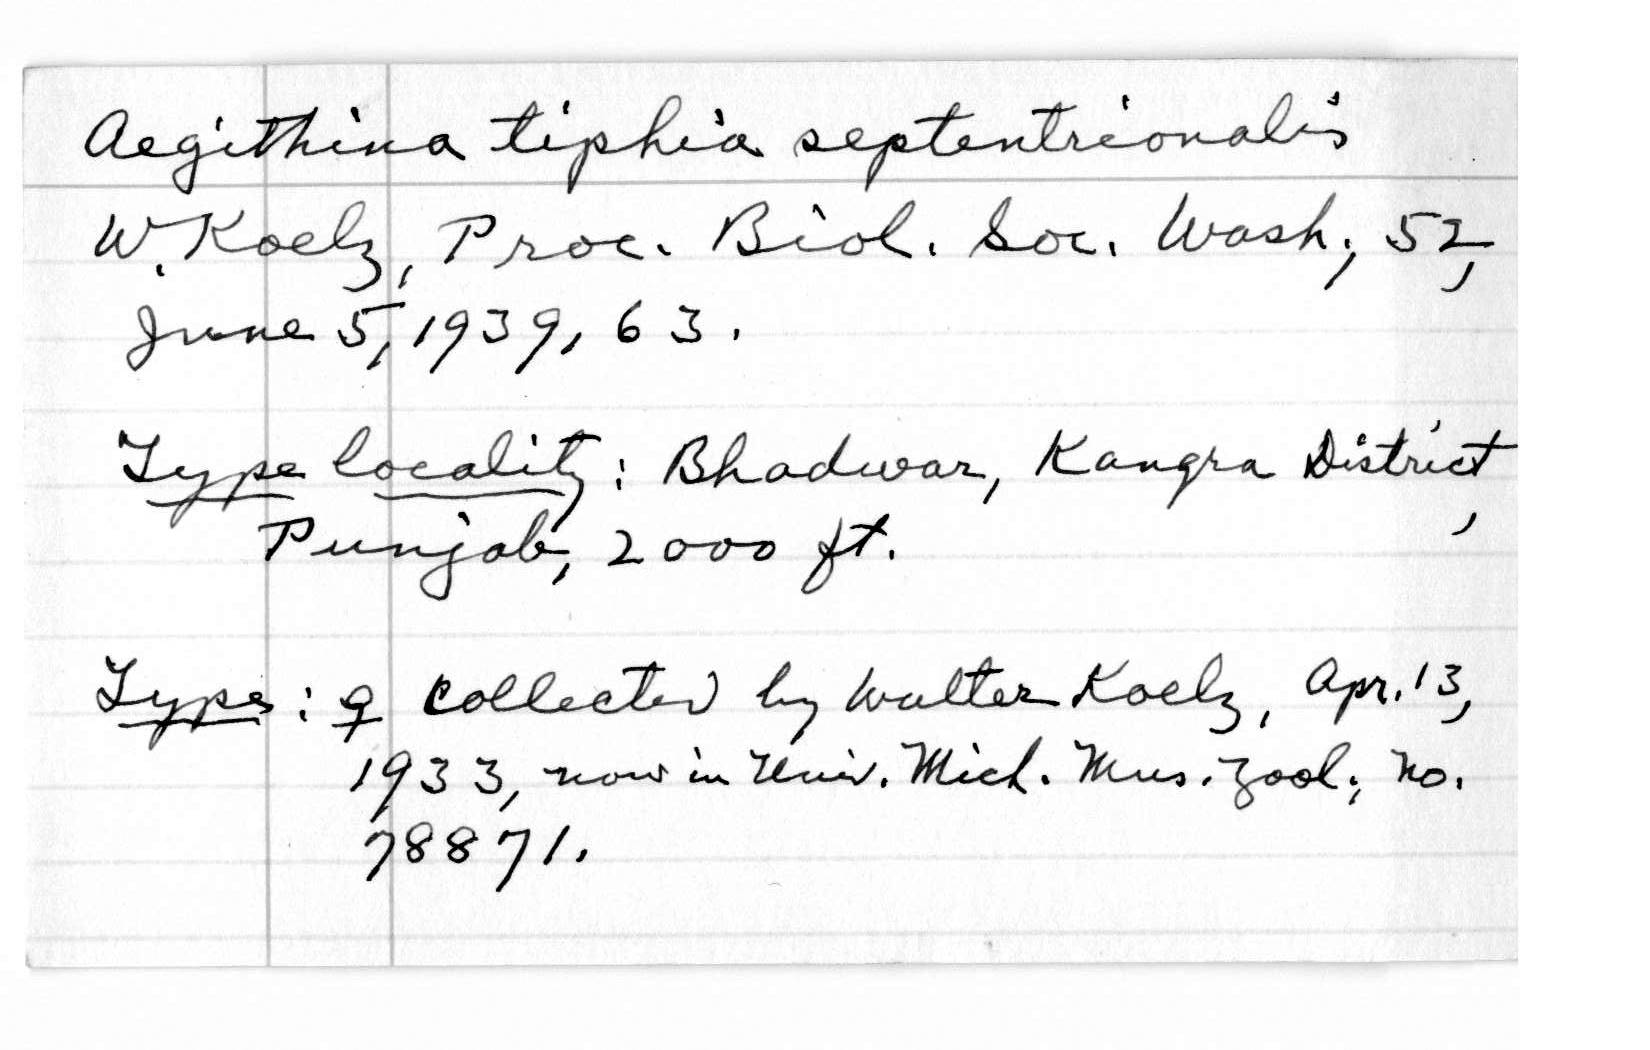 Aegithina tiphia septentrionalis
W. Koelz, Proc. Biol. Soc. Wash., 52,
June 5, 1939, 63.
Type locality: Bhadwar, Kangra District,
Punjab, 2000 ft.
Type: ♀ collected by Walter Koelz, Apr. 13,
1933, now in Univ. Mich. Mus. Zool., no.
78871.